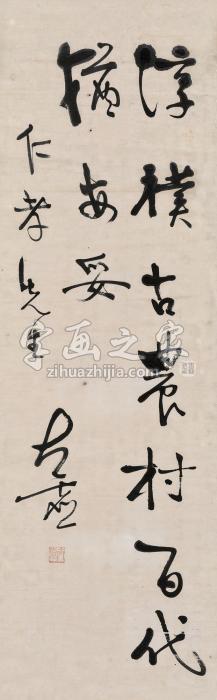 淳樸古農村百代
猶安妥
仁孝先生
太虛
字画之家
zihuazhijia.com